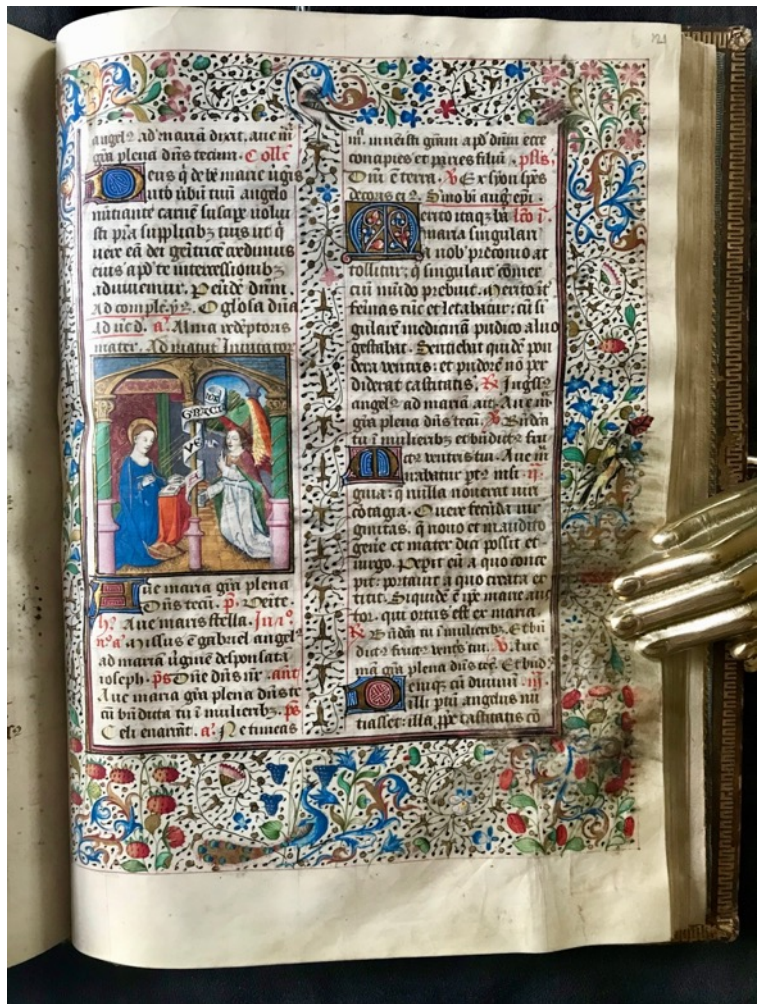 angelꝰ ad mariã dixit. aue mͥ
gr̃a plena dñs tecum. Collc̃
Deus q̃ de btẽ marie ũgis
uto ũbũ tuũ angelo
nũtiante carnẽ suscipe uolui
sti pr̃a supplicibꝫ tuis ut q̃
uere eã dei genitrice credimus
eius apđ te intercessionibꝫ
adiuuemur. P eũdẽ dñm.
Ad comple. O gloſa dña
a᷒. Alma redẽptoris
mater. Ad matut̃ Inuitator̃
GRACI
Aue maria gr̃a plena
Dñs tecũ. p̃. Uẽite.
hỹ. Aue maris stella.
Missus ẽ gabriel angelꝰ
ad mariã ũginẽ desponsatã
ioseph. ps̃ Dñe dñs nr̃. añt
Aue maria gr̃a plena dñs te
cũ bñdicta tu ĩ mulieribꝫ. ps̃
Celi enarrãt. a᷒. Ne timeas
mͣ. inuẽisti gr̃am apđ dñm ecce
concipies et paries filiũ. psl̃s.
Dñi ẽ terra. ℣ Ex syon spẽs
decoris eiꝰ. Sm̃o bĩ aug᷒ ep̃i.
maria singulari
a nob᷒ preconio at
tollitur: q̃ singulare cõmer
ciũ mũdo prebuit.
feĩnas tũc et letabatur: cũ si
gularẽ medicinã pudico aluo
gestabat. Sentiebat quidẽ pon
dera uentris: et pudorẽ nõ per
diderat castitatis. ℟
angelꝰ ad mariã ait. Aue mͥ
gr̃a plena dñs tecũ. ℣. Bñdc̃a
tu ĩ mulieribꝫ et bñdictꝰ fru
ctꝰ uentris tui. Aue mͥ
Mirabatur pt᷒ .ii.
q̃ nulla nouerat uiri
cõtagia. O uere fecũda uir
ginitas. q̃ nouo et inaudito
genẽ et mater dici possit et
uirgo. Pepit eũ a quo conce
pit: portauit a quo creata ex
titit. Siquidẽ ẽ ip̃e marie auc
tor. qui ortus est ex maria.
℟ Bñdc̃a tu ĩ mulieribꝫ. Et bñ
dictꝰ fructꝰ uentris tui. ℣. Aue
mͣ gr̃a plena dñs tec᷒. Et bñd᷒
Deniqꝫ cũ diuinũ .iii.
illi ptũ angelus nũ
tiasset: illa castitatis cõ